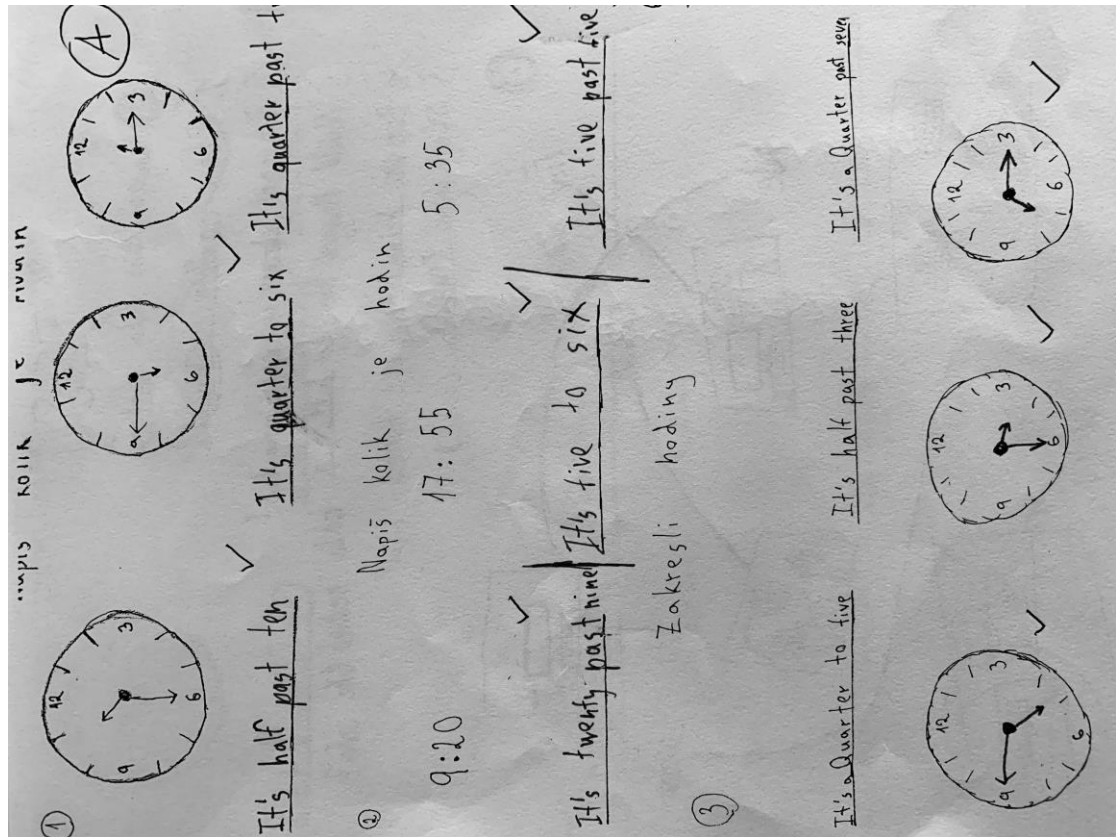 kolik je hodin
① A
12 12 12
9 3 9 3 9 3
6 6 6
It's half past ten It's quarter to six It's quarter past
② Napiš kolik je hodin
9:20 17:55 5:35
It's twenty past nine It's five to six It's five past five
③ Zakresli hoding
It's a Quarter to five It's half past three It's a Quarter past seven
12 12 12
9 3 9 3 9 3
6 6 6